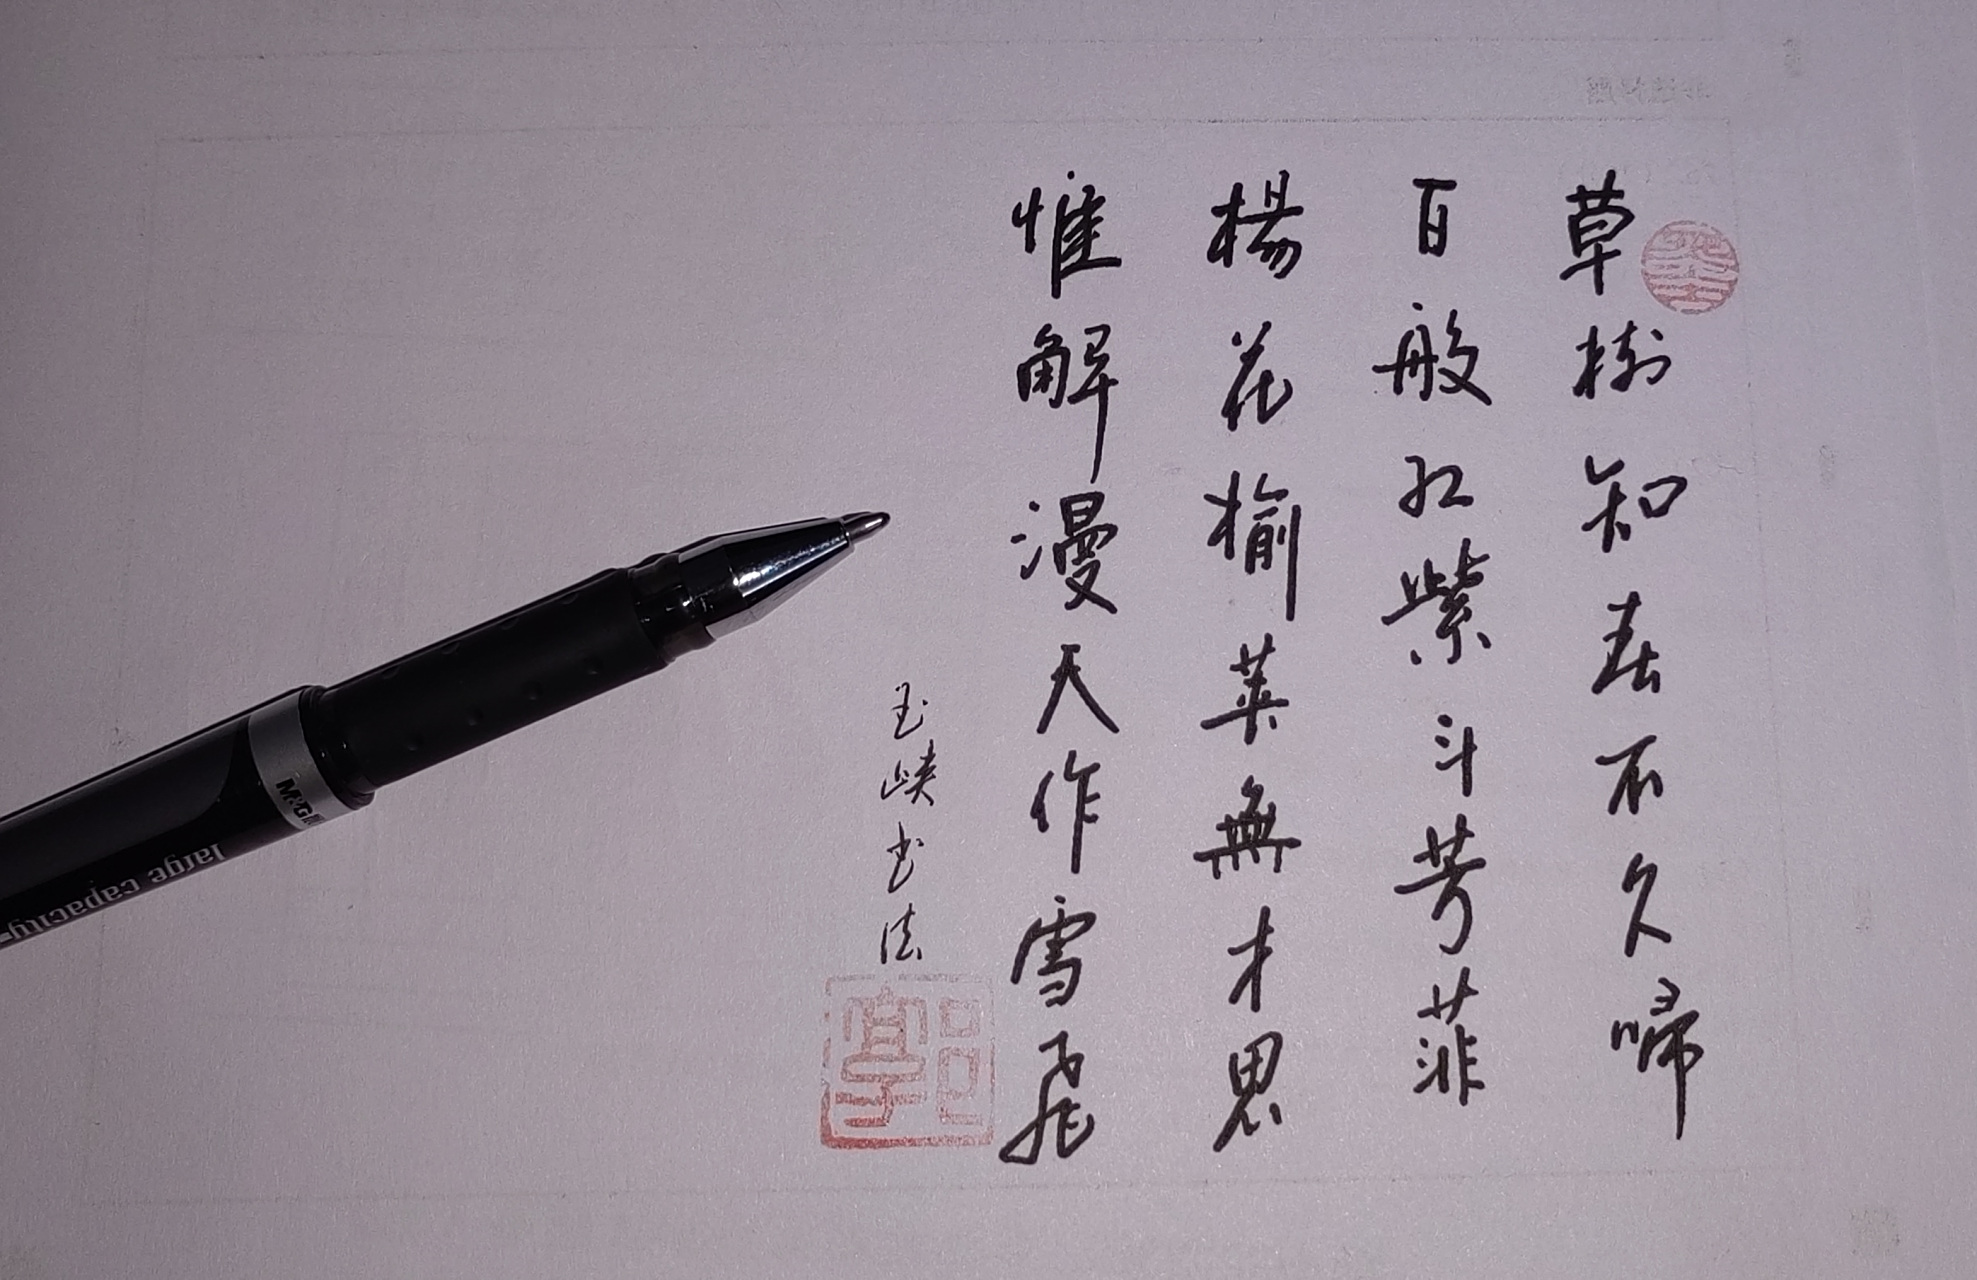 草樹知春不久啼
百般红紫斗芳菲
楊花榆莢無才思
惟解漫天作雪飛
玉峡书法
M&G
large capacity